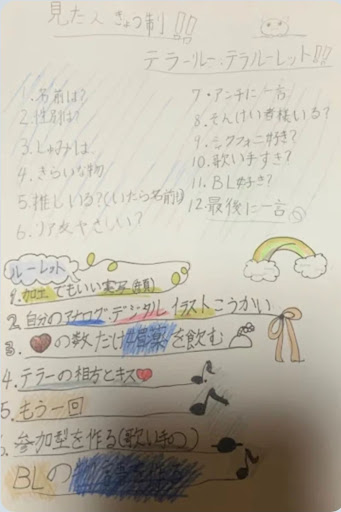 見た人きょう制!!
テラールー.テラルーレット!!
1.名前は?
2.性別は?
3.しゅみは
4.きらいな物
5.推しいる?(いたら名前!)
6.リア友やさしい?
7.アンチに一言
8.そんけい者様いる?
9.シクフォニ好き?
10.歌い手すき?
11.BL好き?
12.最後に一言
ルーレット
1.加工でもいい実写(顔)
2.自分のアナログ.デジタルイラストこうかい
3.❤の数だけ胃薬を飲む
4.テラーの相方とキス❤
5.もう一回
6.参加型を作る(歌い手の)
BLの